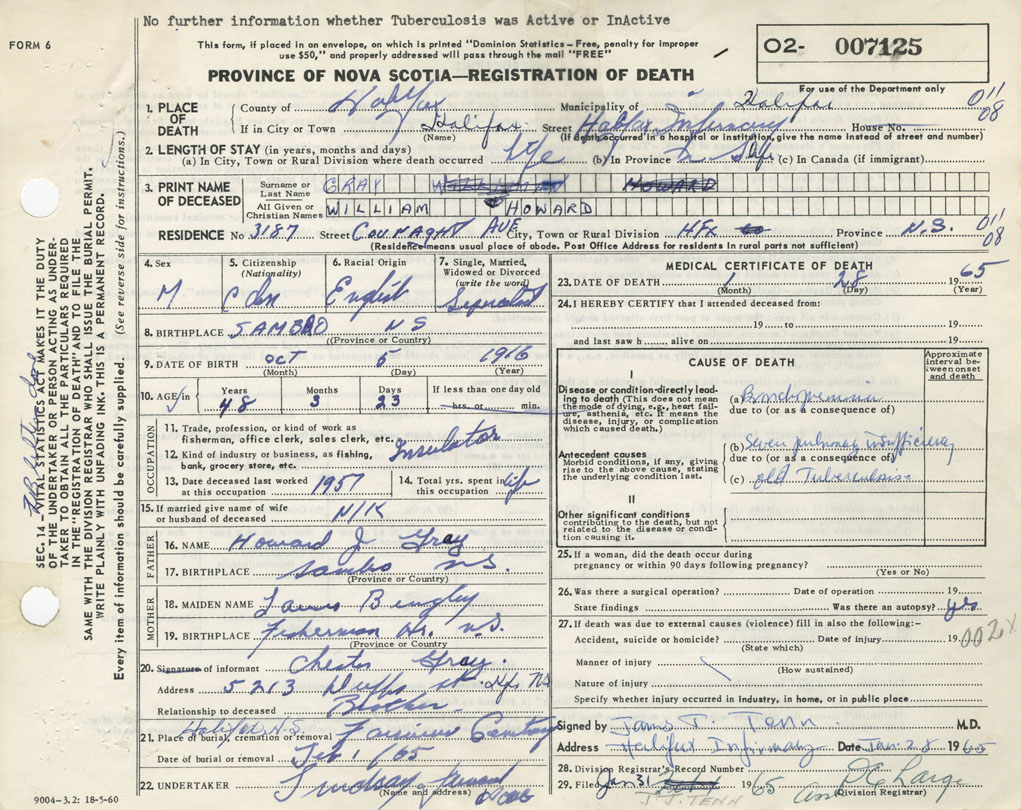 No further information whether Tuberculosis was Active or InActive
FORM 6
This form, if placed in an envelope, on which is printed "Dominion Statistics–Free, penalty for improper
use $50," and properly addressed will pass through the mail "FREE"
02- 007125
For use of the Department only
PROVINCE OF NOVA SCOTIA—REGISTRATION OF DEATH
1. PLACE OF DEATH County of Halifax Municipality of Halifax 011 08
If in City or Town Halifax (Name) Street Halifax Infirmary House No.
(If death occurred in a hospital or institution, give the name instead of street and number)
2. LENGTH OF STAY (in years, months and days)
(a) In City, Town or Rural Division where death occurred life (b) In Province life (c) In Canada (if immigrant)
3. PRINT NAME OF DECEASED Surname or Last Name GRAY HOWARD
All Given or Christian Names WILLIAM HOWARD
RESIDENCE No 3187 Street CONNAGHT AVE City, Town or Rural Division HFX Province N.S. 011 08
(Residence means usual place of abode. Post Office Address for residents in rural parts not sufficient)
4. Sex M
5. Citizenship (Nationality) Cdn
6. Racial Origin English
7. Single, Married, Widowed or Divorced (write the word) Separated
8. BIRTHPLACE SAMBRO NS
(Province or Country)
9. DATE OF BIRTH OCT 5 1916
(Month) (Day) (Year)
10. AGE Years 48 Months 3 Days 23 If less than one day old hrs. or min.
OCCUPATION
11. Trade, profession, or kind of work as fisherman, office clerk, sales clerk, etc. Insulator
12. Kind of industry or business, as fishing, bank, grocery store, etc.
13. Date deceased last worked at this occupation 1957
14. Total yrs. spent in life
15. If married give name of wife or husband of deceased N/K
FATHER
16. NAME Howard J Gray
17. BIRTHPLACE Sambro N.S.
(Province or Country)
MOTHER
18. MAIDEN NAME Bingley
19. BIRTHPLACE Fisherman Hr. N.S.
(Province or Country)
20. Signature of informant Chester Gray
Address 5213 Duffus St. Hfx NS
Relationship to deceased Brother
Halifax N.S.
21. Place of burial, cremation or removal Fairview Cemetery
Date of burial or removal Feb 1/65
22. UNDERTAKER Lindsay
(Name and address)
9004–3.2: 18-5-60
SEC. 14—VITAL STATISTICS ACT MAKES IT THE DUTY
OF THE UNDERTAKER OR PERSON ACTING AS UNDER-
TAKER TO OBTAIN ALL THE PARTICULARS REQUIRED
IN THE "REGISTRATION OF DEATH" AND TO FILE THE
SAME WITH THE DIVISION REGISTRAR WHO SHALL ISSUE THE BURIAL PERMIT.
WRITE PLAINLY WITH UNFADING INK. THIS IS A PERMANENT RECORD.
Every item of information should be carefully supplied. (See reverse side for instructions.)
MEDICAL CERTIFICATE OF DEATH
23. DATE OF DEATH 1 28 1965
(Month) (Day) (Year)
24. I HEREBY CERTIFY that I attended deceased from:
19 to 19
and last saw h alive on 19
CAUSE OF DEATH
Approximate interval between onset and death
I
Disease or condition directly leading to death (This does not mean the mode of dying, e.g., heart failure, asthenia, etc. It means the disease, injury, or complication which caused death.)
(a) Bronchopneumonia
due to (or as a consequence of)
Antecedent causes
Morbid conditions, if any, giving rise to the above cause, stating the underlying condition last.
(b) Severe pulmonary insufficiency
due to (or as a consequence of)
(c) old Tuberculosis
II
Other significant conditions
contributing to the death, but not related to the disease or condition causing it.
25. If a woman, did the death occur during pregnancy or within 90 days following pregnancy?
(Yes or No)
26. Was there a surgical operation? Date of operation 19
State findings Was there an autopsy? yes
27. If death was due to external causes (violence) fill in also the following:–
Accident, suicide or homicide? Date of injury 19 002X
(State which)
Manner of injury
(How sustained)
Nature of injury
Specify whether injury occurred in industry, in home, or in public place
Signed by T. Tenn M.D.
Address Halifax Infirmary Date Jan. 28 1965
28. Division Registrar's Record Number
29. Filed Jan 31 1965
J. J. TENN
(Division Registrar)